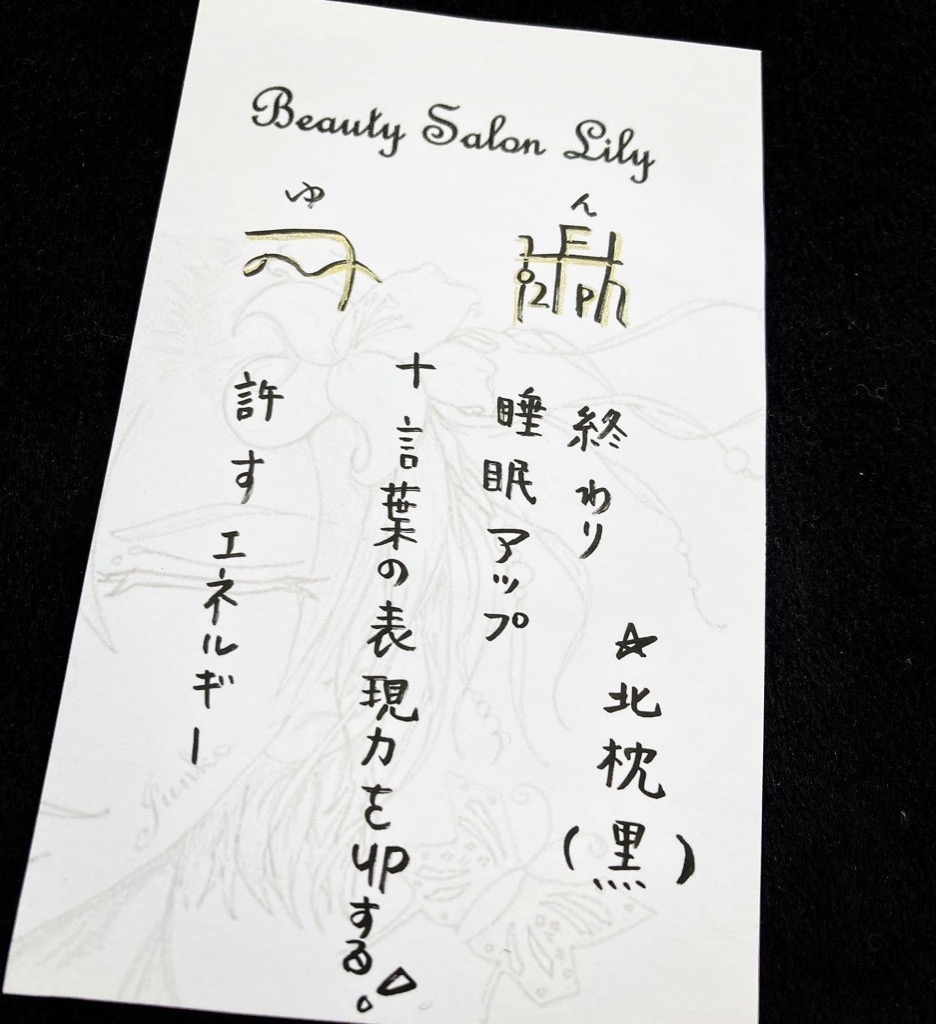 Beauty Salon Lily
ん
☆北枕(黒)
終わり
睡眠アップ
ゆ
十言葉の表現力をupする!
許すエネルギー